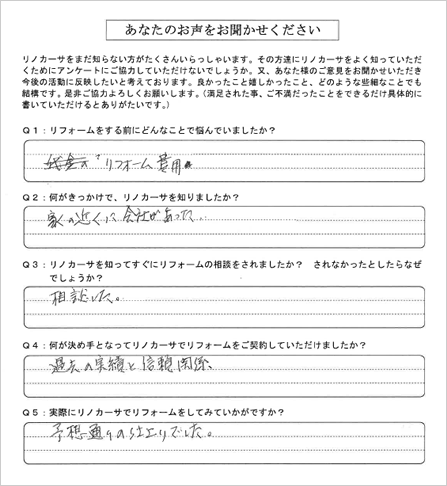 あなたのお声をお聞かせください
リノカーサをまだ知らない方がたくさんいらっしゃいます。その方達にリノカーサをよく知っていただ
くためにアンケートにご協力していただけないでしょうか。又、あなた様のご意見をお聞かせいただき
今後の活動に反映したいと考えております。良かったこと嬉しかったこと、どのような些細なことでも
結構です。是非ご協力よろしくお願いします。(満足された事、ご不満だったことをできるだけ具体的に
書いていただけるとありがたいです。)
Q1:リフォームをする前にどんなことで悩んでいましたか?
リフォーム費用
Q2:何がきっかけで、リノカーサを知りましたか?
家の近くに会社があった。
Q3:リノカーサを知ってすぐにリフォームの相談をされましたか? されなかったとしたらなぜ
でしょうか?
相談した。
Q4:何が決め手となってリノカーサでリフォームをご契約していただけましたか?
過去の実績と信頼関係。
Q5:実際にリノカーサでリフォームをしてみていかがですか?
予想通りの仕上りでした。